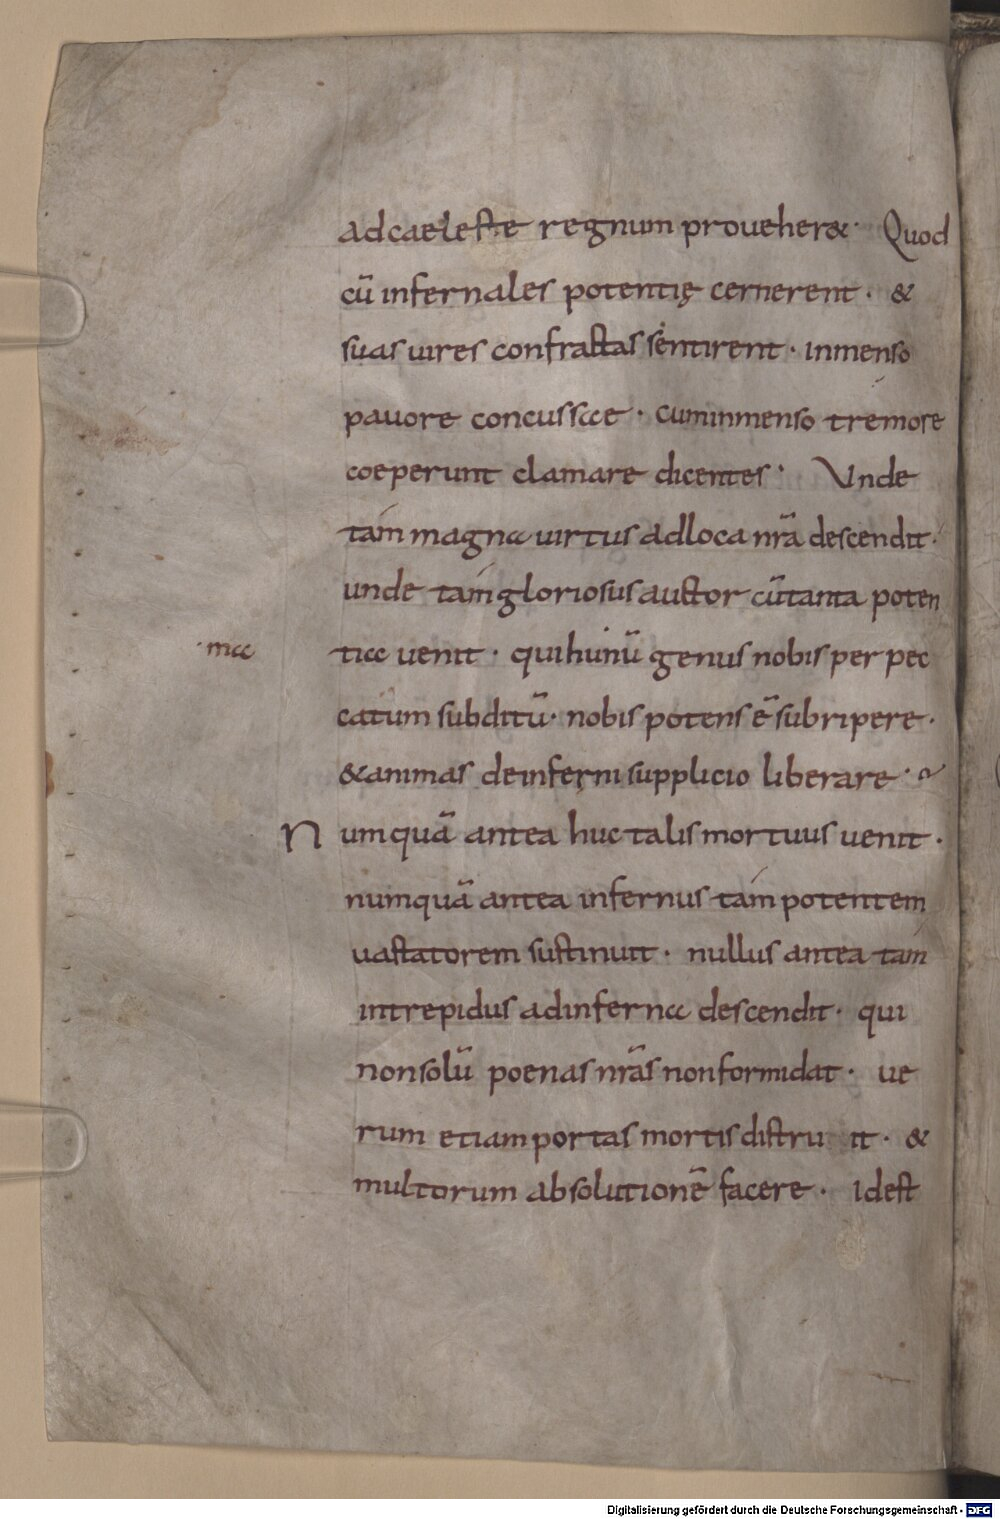 adcaeleste regnum proueher&· Quod
cū infernales potentię cernerent· &
suas uires confractas sentirent· inmenso
pauore concussae· cuminmenso tremore
coeperunt clamare dicentes· Unde
tam magna uirtus adloca nr̄a descendit·
unde tam gloriosus auctor cūtanta poten
·ma
tia uenit· quihunū genus nobis per pec
catum subditū· nobis potens ē subripere·
&animas deinferni supplicio liberare·
Numquā antea huc talis mortuus uenit·
numquā antea infernus tam potentem
uastatorem sustinuit· nullus antea tam
intrepidus adinferna descendit· qui
nonsolū poenas nr̄as nonformidat· ue
rum etiam portas mortis distru it· &
multorum absolutionē facere· idest
Digitalisierung gefördert durch die Deutsche Forschungsgemeinschaft - DFG